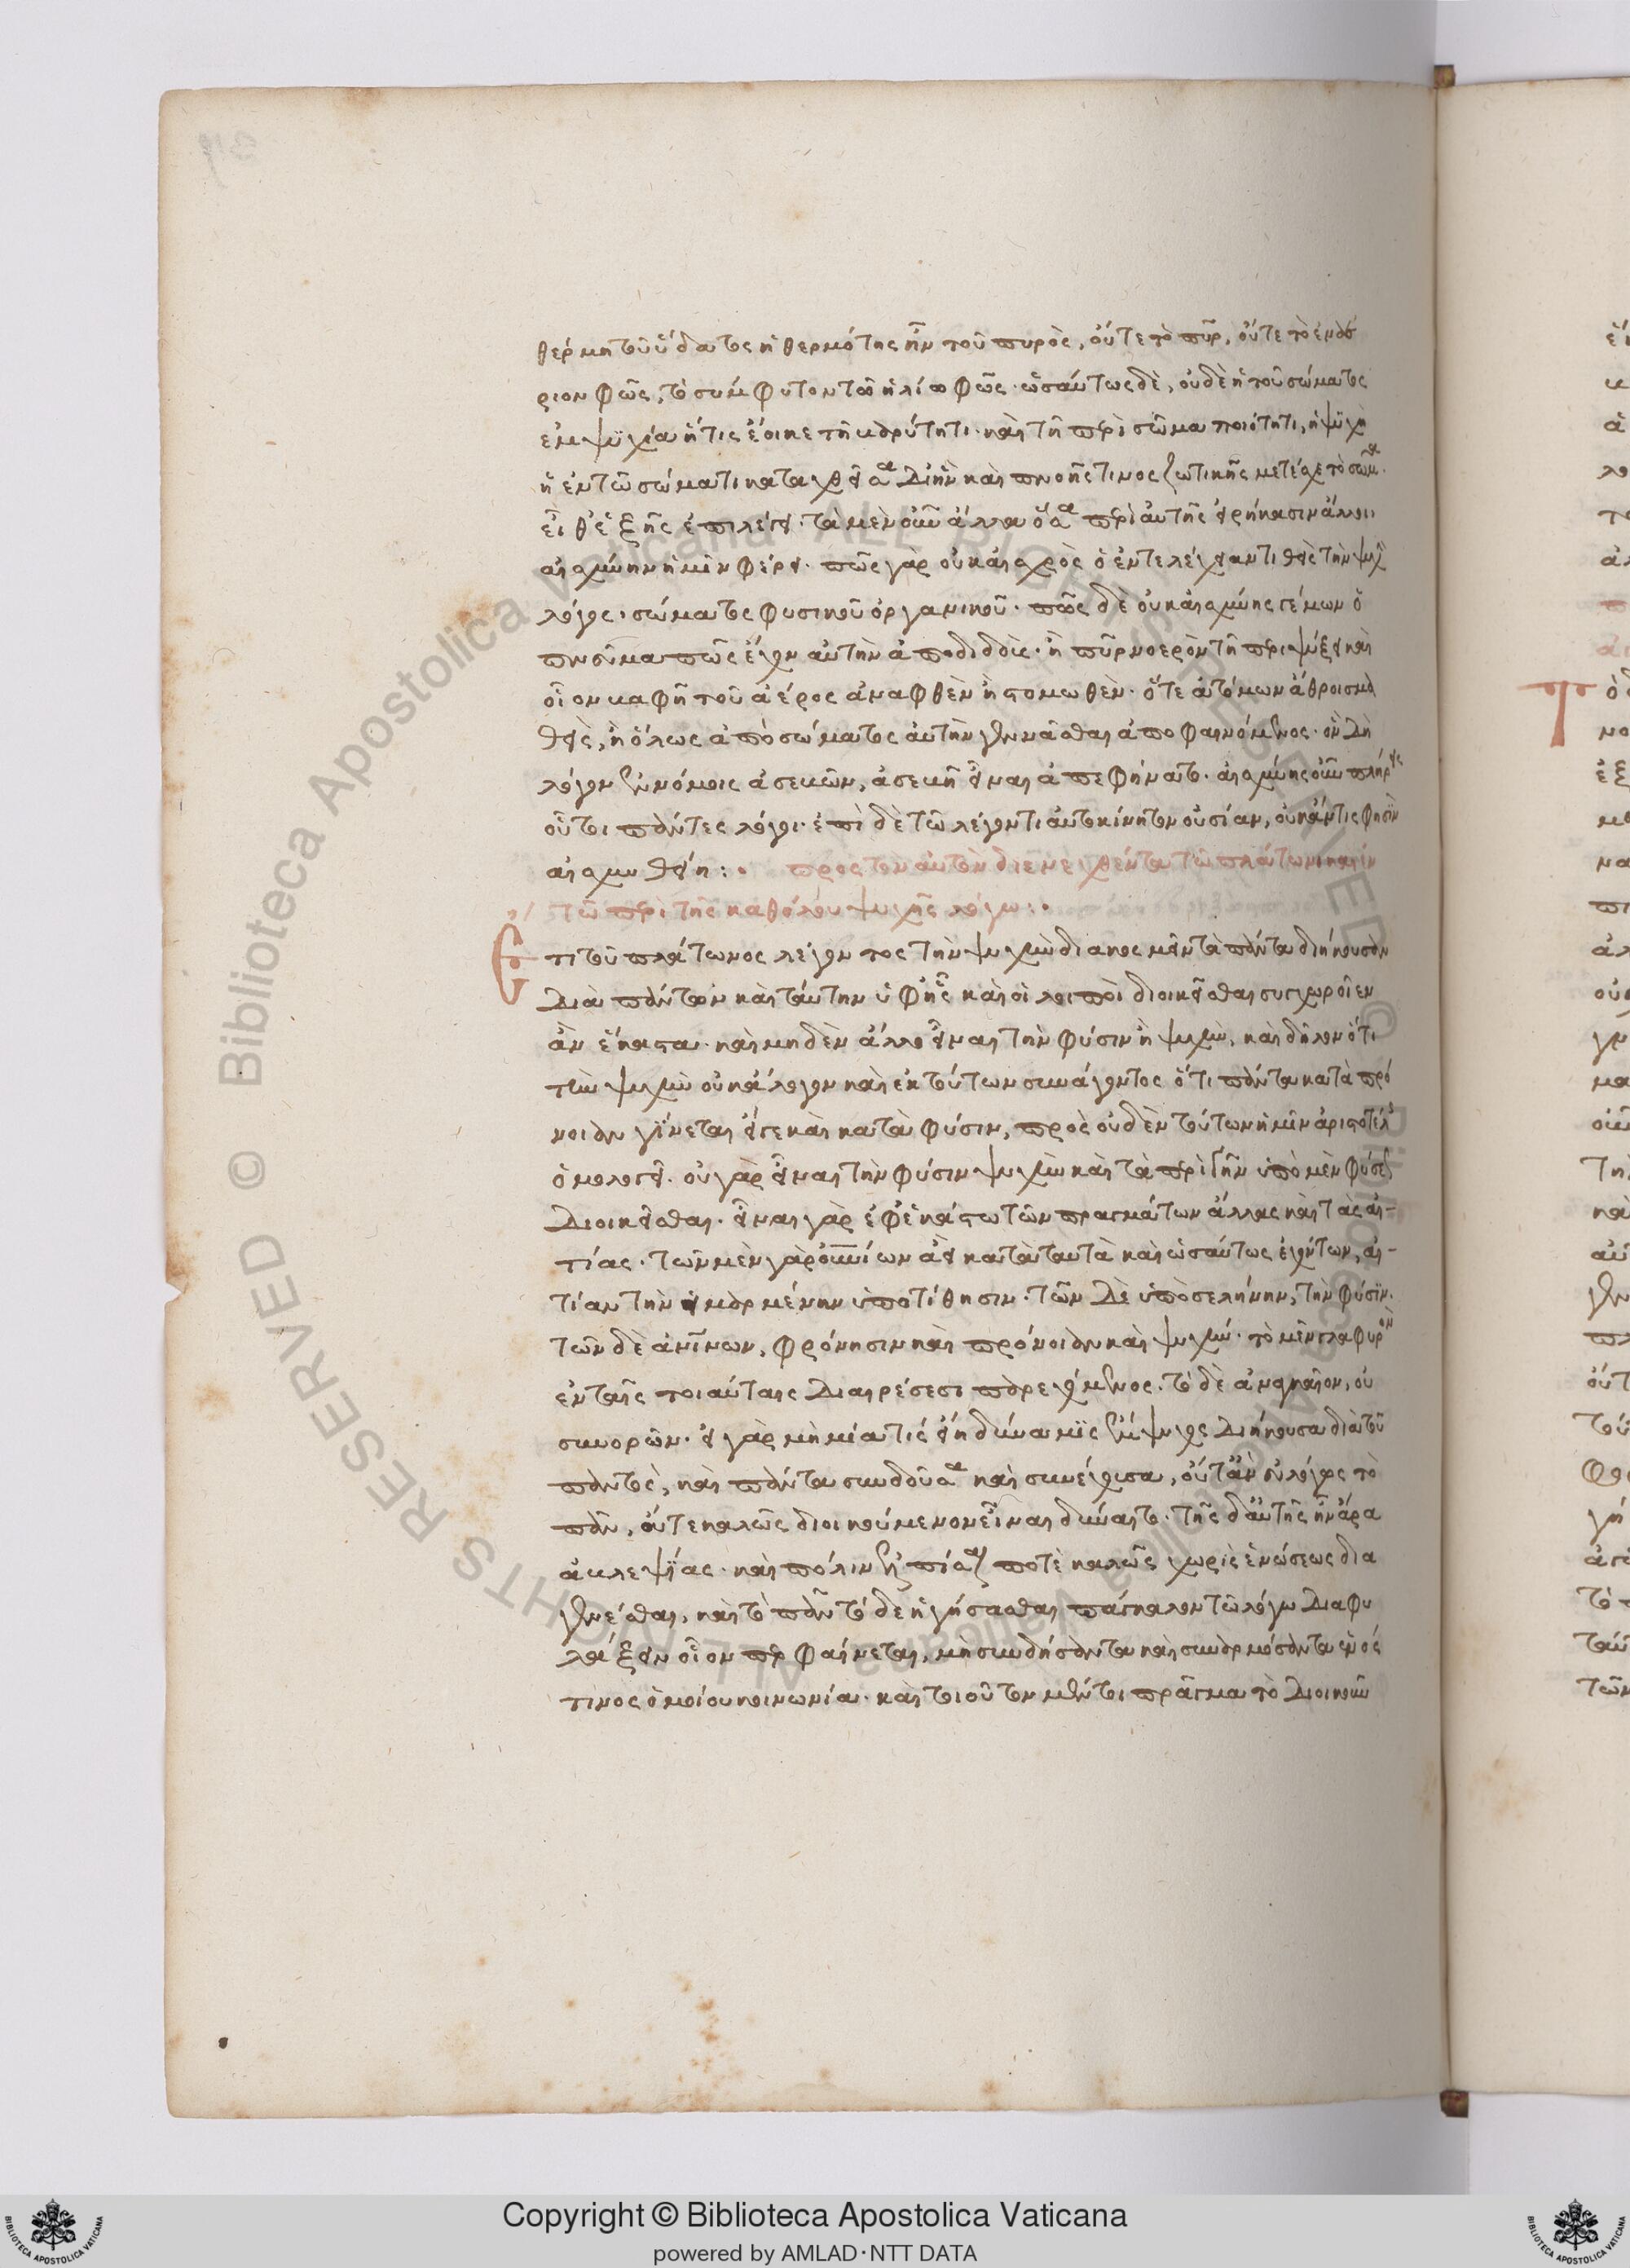 θέρμη τοῦ ὕδατος ἡ θερμότης ἦν τοῦ πυρὸς, οὔτε τὸ πῦρ, οὔτε τὸ ἐνάέ
ριον φῶς, τὸ σύμφυτον τῶ ἡλίω φῶς· ὡσαύτως δὲ, οὐδὲ ἡ τοῦ σώματος
ἐμψυχία ἥτις ἔοικε τῆ βαρύτητι καὶ τῆ περὶ σῶμα ποιότητι, ἡ ψυχὴ
ἡ ἐν τῶ σώματι καταχθεῖσα δι' ἣν καὶ πνοῆς τινος ζωτικῆς μετέσχε τὸ σῶμα·
εἶθ' ἑξῆς ἐπιλέγει· τὰ μὲν οὖν ἄλλα ὅσα περὶ αὐτῆς εἰρήκασιν ἄλλοι
αἰσχύνην ἡμῖν φέρει· πῶς γὰρ οὐκ αἰσχρὸς ὁ ἐντελέχειαν τιθεὶς τὴν ψυχὴν
λόγος· σώματος φυσικοῦ ὀργανικοῦ· πῶς δὲ οὐκ αἰσχύνης γέμων ὁ
πνεῦμα πῶς ἔχον αὐτὴν ἀποδιδοὺς· ἢ πῦρ νοερὸν τῆ περιψύξει καὶ
οἷον βαφῆ τοῦ ἀέρος ἀναφθὲν ἢ στομωθὲν· ὅτε ἀτόμων ἄθροισμα
θεὶς, ἢ ὅλως ἀπὸ σώματος αὐτὴν γεννᾶσθαι ἀποφαινόμενος· ὃν δὴ
λόγον ἐν νόμοις ἀσεβῶν, ἀσεβῆ εἶναι ἀπεφήνατο· αἰσχύνης οὖν πλήρεις
οὗτοι πάντες λόγοι· ἐπὶ δὲ τῶ λέγοντι αὐτοκίνητον οὐσίαν, οὐκ ἄν τις φησὶν
αἰσχυνθείη:· πρὸς τὸν αὐτὸν διενεχθέντα τῶ πλάτωνι καὶ ἐν
τῶ περὶ τῆς καθόλου ψυχῆς λόγω:·
Ἔτι τοῦ πλάτωνος λέγοντος τὴν ψυχὴν διακοσμεῖν τὰ πάντα διήκουσαν
διὰ πάντων καὶ ταύτην ὑφ' ἧς καὶ οἱ λοιποὶ διοικεῖσθαι συγχωροῖεν
ἂν ἕκαστα· καὶ μηδὲν ἄλλο εἶναι τὴν φύσιν ἢ ψυχὴν, καὶ δῆλον ὅτι
τὴν ψυχὴν οὐκ ἄλογον καὶ ἐκ τούτων συνάγοντος ὅτι πάντα κατὰ πρό
νοιαν γίνεται εἴγε καὶ κατὰ φύσιν, πρὸς οὐδὲν τούτων ἡμῖν ἀριστοτέλης
ὁμολογεῖ· οὐ γὰρ εἶναι τὴν φύσιν ψυχὴν καὶ τὰ περὶ γῆν ὑπὸ μὲν φύσεως
διοικεῖσθαι· εἶναι γὰρ ἐφ' ἑκάστω τῶν πραγμάτων ἄλλας καὶ τὰς αἰ-
τίας· τῶν μὲν γὰρ οὐρανίων ἀεὶ κατὰ ταυτὰ καὶ ὡσαύτως ἐχόντων, αἰ-
τίαν τὴν εἱμαρμένην ὑποτίθησιν· τῶν δὲ ὑπὸ σελήνην, τὴν φύσιν·
τῶν δὲ ἀνθρωπίνων, φρόνησιν καὶ πρόνοιαν καὶ ψυχὴν· τὸ μὲν γλαφυρὸν
ἐν ταῖς τοιαύταις διαιρέσεσι παρεχόμενος· τὸ δὲ ἀναγκαῖον, οὐ
συνορῶν· εἰ γὰρ μὴ μία τις εἴη δύναμις ἔμψυχος διήκουσα διὰ τοῦ
παντὸς, καὶ πάντα συνδοῦσα καὶ συνέχουσα, οὔτ' ἂν εὐλόγως τὸ
πᾶν, οὔτε καλῶς διοικούμενον εἶναι δύναιτο· τῆς δ' αὐτῆς ἦν ἄρα
ἀβλεψίας· καὶ πόλιν ἐλπίσαι ποτὲ καλῶς χωρὶς ἑνώσεως δια
γενέσθαι, καὶ τὸ πᾶν τόδε ἡγήσασθαι πάγκαλον τῶ λόγω διαφυ
λάξειν οἷον περ φαίνεται, μὴ συνδήσαντα καὶ συναρμόσαντα ἑνός
τινὸς ὁμοίου κοινωνία· καὶ τοιοῦτον μέντοι πρᾶγμα τὸ διοικοῦν
Copyright © Biblioteca Apostolica Vaticana
powered by AMLAD・NTT DATA